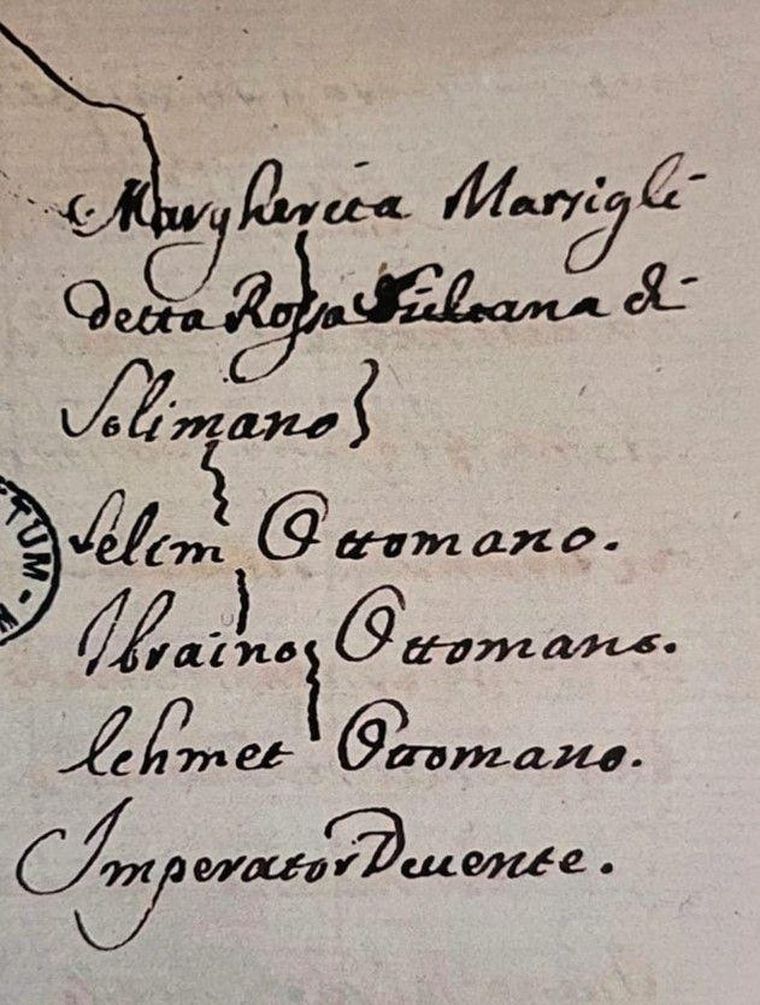 Margherita Marsigli
detta Rossa Sultana di
Solimano
Selim Ottomano.
Ibraino Ottomano.
Ottomano.
Imperator Vivente.
TUM